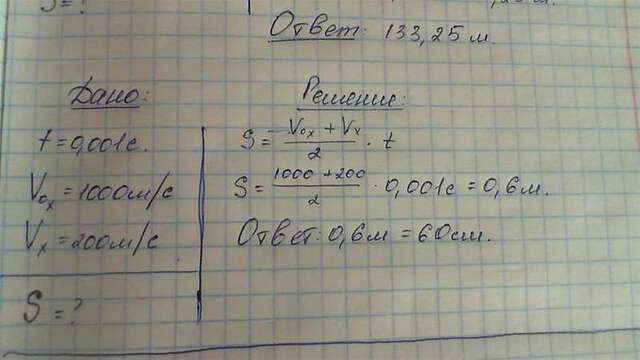 S = ?
Ответ: 133,25 м.
Дано:
t = 0,001с.
V₀ₓ = 1000м/с
Vₓ = 200м/с
S = ?
Решение:
S = (V₀ₓ + Vₓ)/2 · t
S = (1000 + 200)/2 · 0,001с = 0,6м.
Ответ: 0,6м = 60см.